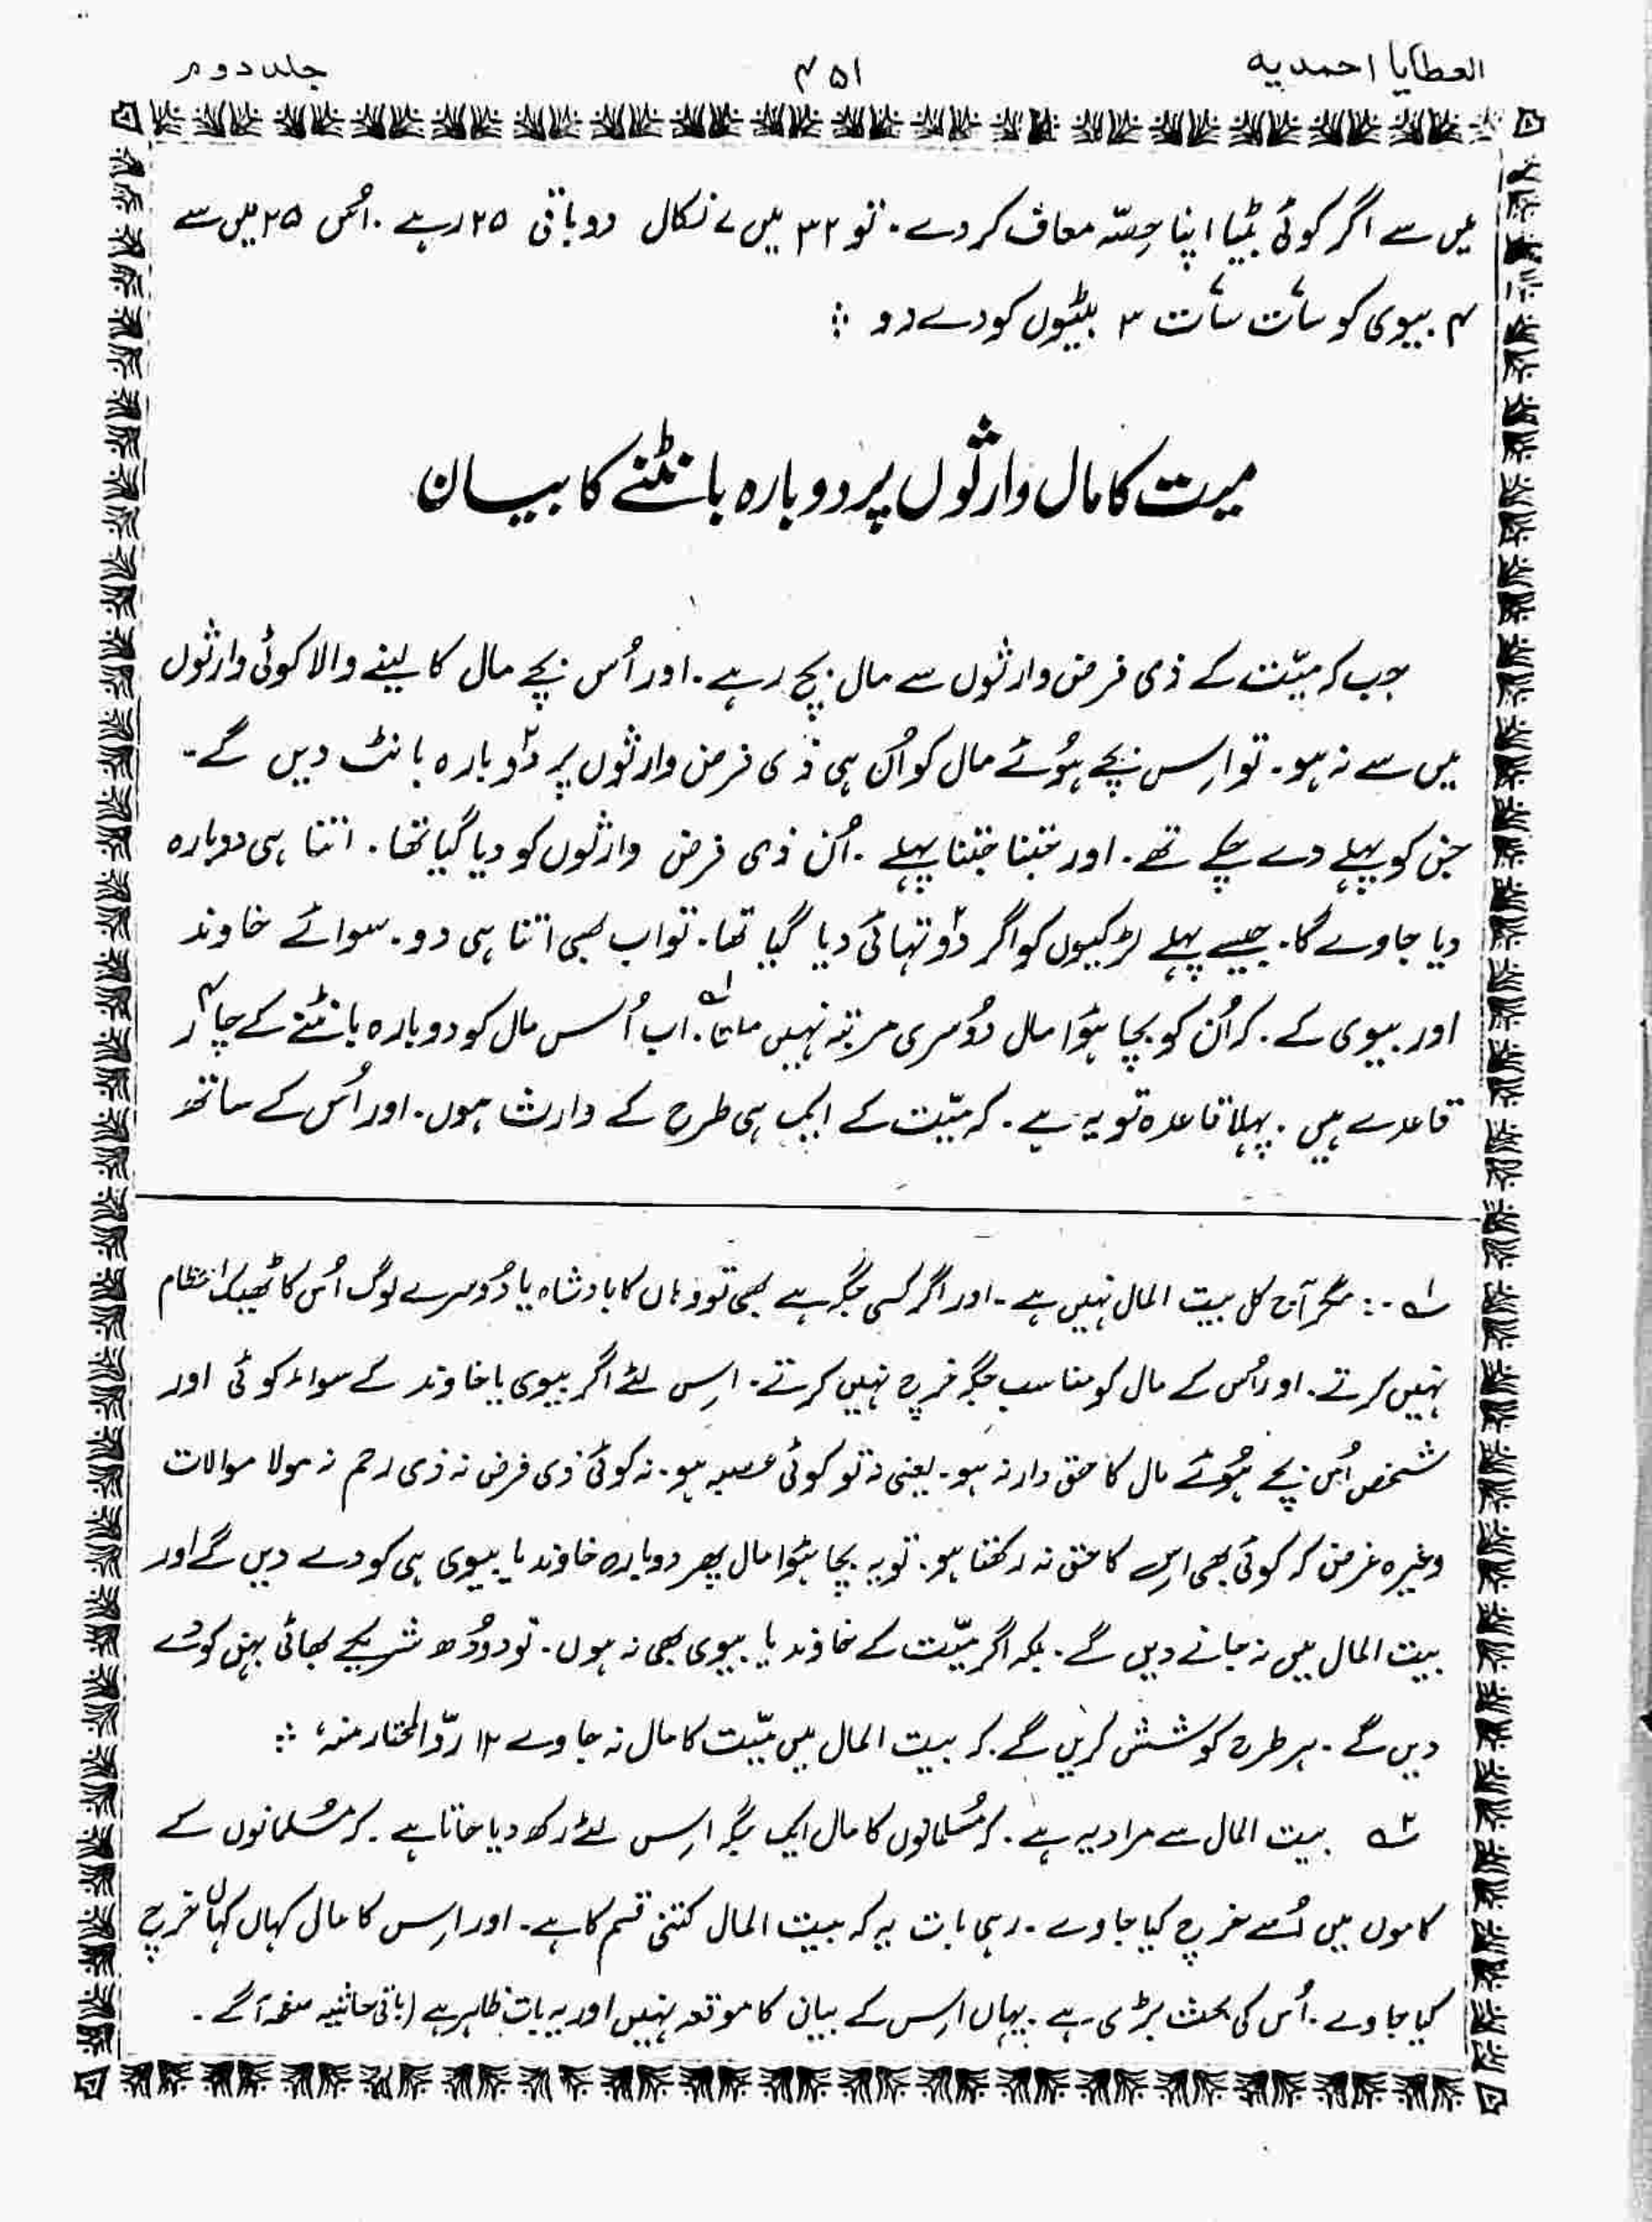 العطایا احمدیه
۴۵۱
جلد دوم
میں سے اگر کوئی بٹیا اپنا حِصّہ معاف کر دے۔ تو ۳۲ میں ۷ نکال دو باقی ۲۵ رہے۔ اُس ۲۵ میں سے
۴ بیوی کو سات سات ۳ بیٹیوں کو دے دو ؞
میت کا مال وارثوں پر دوبارہ بانٹنے کا بیان
جب کہ میّت کے ذی فرض وارثوں سے مال بچ رہے۔ اور اُس بچے مال کا لینے والا کوئی وارثوں
میں سے نہ ہو۔ تو اِس بچے ہُوئے مال کو اُن ہی ذی فرض وارثوں پر دوبارہ بانٹ دیں گے۔
جن کو پہلے دے چکے تھے۔ اور جتنا جتنا پہلے۔ اُن ذی فرض وارثوں کو دیا گیا تھا۔ اتنا ہی دوبارہ
دیا جاوے گا۔ جیسے پہلے لڑکیوں کو اگر دو تہائی دیا گیا تھا۔ تو اب بھی اتنا ہی دو۔ سوائے خاوند
اور بیوی کے۔ کہ اُن کو بچا ہوا مال دُوسری مرتبہ نہیں ملتا۱ؔ۔ اب اُس مال کو دوبارہ بانٹنے کے چار۴
قاعدے ہیں۔ پہلا قاعدہ تو یہ ہے۔ کہ میّت کے ایک ہی طرح کے وارث ہوں۔ اور اُس کے ساتھ
۱ؔ ؞ مگر آج کل بیت المال نہیں ہے۔ اور اگر کسی جگہ ہے بھی تو وہاں کا بادشاہ یا دُوسرے لوگ اُس کا ٹھیک انتظام
نہیں کرتے۔ اور اُس کے مال کو مناسب جگہ خرچ نہیں کرتے۔ اِس لئے اگر بیوی یا خاوند کے سواء کوئی اور
شخص اُس بچے ہُوئے مال کا حق دار نہ ہو۔ یعنی نہ تو کوئی عصبہ ہو۔ نہ کوئی ذی فرض نہ ذی رحم نہ مولا موالات
وغیرہ غرض کہ کوئی بھی اِس کا حق نہ رکھتا ہو۔ تو یہ بچا ہُوا مال پھر دوبارہ خاوند یا بیوی ہی کو دے دیں گے اور
بیت المال میں نہ جانے دیں گے۔ بلکہ اگر میّت کے خاوند یا بیوی بھی نہ ہوں۔ تو دودُھ شریکے بھائی بہن کو دے
دیں گے۔ ہر طرح کوشش کریں گے کہ بیت المال میں میّت کا مال نہ جاوے ۱۲ ردّ المختار منہ، ؞
۲ؔ بیت المال سے مراد یہ ہے۔ کہ مُسلمانوں کا مال ایک جگہ اِس لئے رکھ دیا جاتا ہے۔ کہ مُسلمانوں کے
کاموں میں اُسے خرچ کیا جاوے۔ رہی بات یہ کہ بیت المال کتنی قسم کا ہے۔ اور اِس کا مال کہاں کہاں خرچ
کیا جاوے۔ اُس کی بحث بڑی ہے۔ یہاں اِس کے بیان کا موقعہ نہیں اور یہ بات ظاہر ہے (باقی حاشیہ صفحہ آگے۔